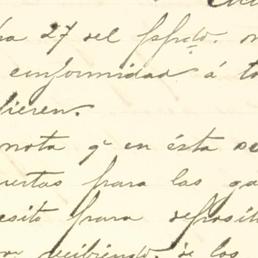 27 del
conformidad á to
dieren.
nota q en ésta
uertas para las ga
esito para deposit
recibiendo de los